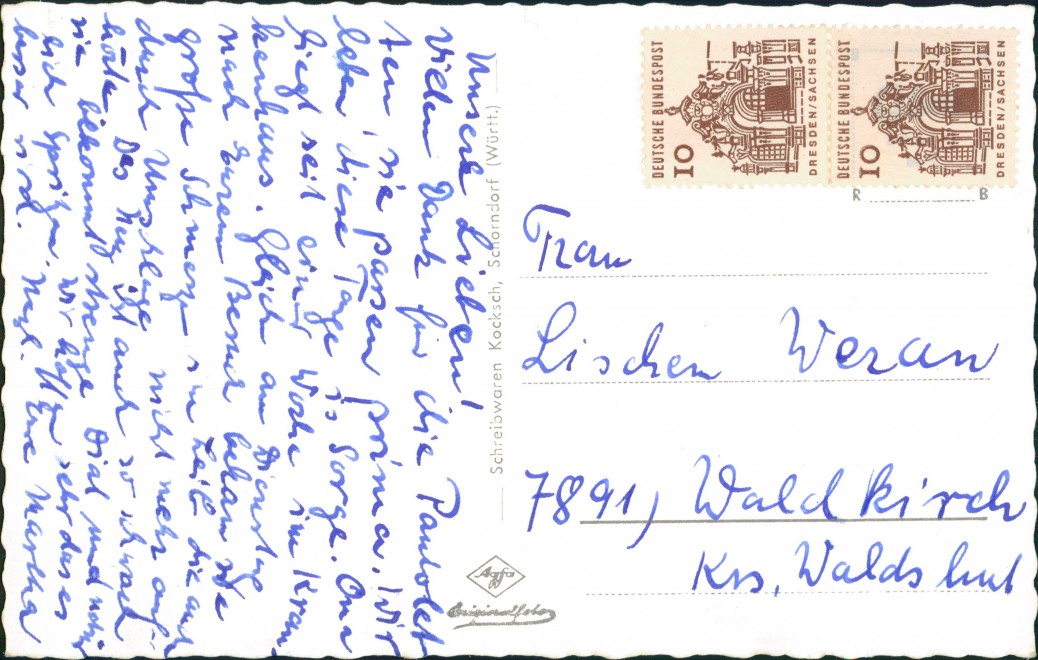 Unsere Lieben!
Vielen Dank für die Pantolet
ten, sie passen prima. Wir
leben diese Tage in Sorge. Oma
liegt seit einer Woche im Kran
kenhaus. Gleich am Dienstag
nach Eurem Besuch bekam sie
große Schmerzen im Leib die auch
durch Umschläge nicht mehr auf
hörten. Das Herz ist auch so schwach
sie bekommt strenge Diät und
sich Spritzen. Wir hoffen sehr das es
besser wird. Herzl. Eure Martha
Schreibwaren Kocksch, Schorndorf (Württ.)
Agfa
Originalfoto
DEUTSCHE BUNDESPOST
10
DRESDEN/SACHSEN
DEUTSCHE BUNDESPOST
10
DRESDEN/SACHSEN
R B
Frau
Lischen Weran
7891, Waldkirch
Krs. Waldshut